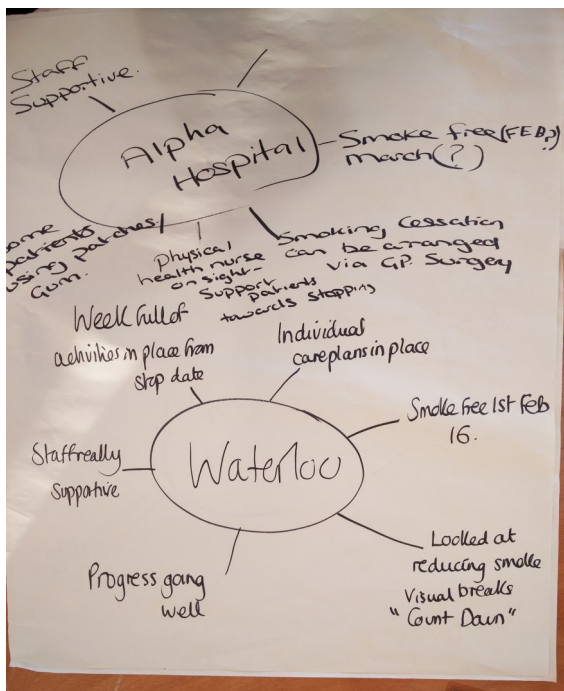 Staff
Supportive.
Alpha
Hospital
Smoke free (FEB?)
March (?)
ome
patients
using patches/
Gum.
Physical
health nurse
on sight-
Support
patients
towards stopping
Smoking Cessation
can be arranged
via G.P. Surgery
Week full of
activities in place from
stop date
Individual
care plans in place
Smoke free 1st Feb
16.
Staff really
supportive
Waterloo
Progress going
well
Looked at
reducing smoke
Visual breaks
"Count Down"